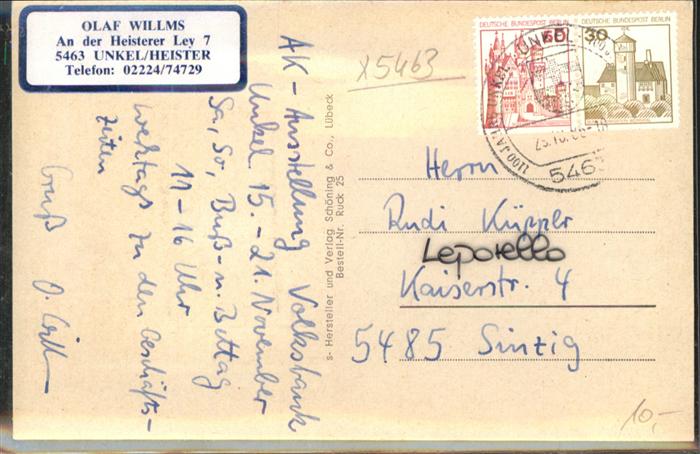 OLAF WILLMS
An der Heisterer Ley 7
5463 UNKEL/HEISTER
Telefon: 02224/74729
x5463
AK - Ausstellung Volksbank
Unkel 15. - 21. November
Sa, So, Buß- u. Bettag
11 - 16 Uhr
werktags zu den Geschäfts-
zeiten
Gruß O. Willms
s- Hersteller und Verlag Schöning & Co., Lübeck
Bestell-Nr. Ruck 25
DEUTSCHE BUNDESPOST BERLIN
60
DEUTSCHE BUNDESPOST BERLIN
30
1100 JAHRE UNKEL
UNKEL
5463
Herrn
Rudi Küpper
Leporello
Kaiserstr. 4
5485 Sinzig
10,-